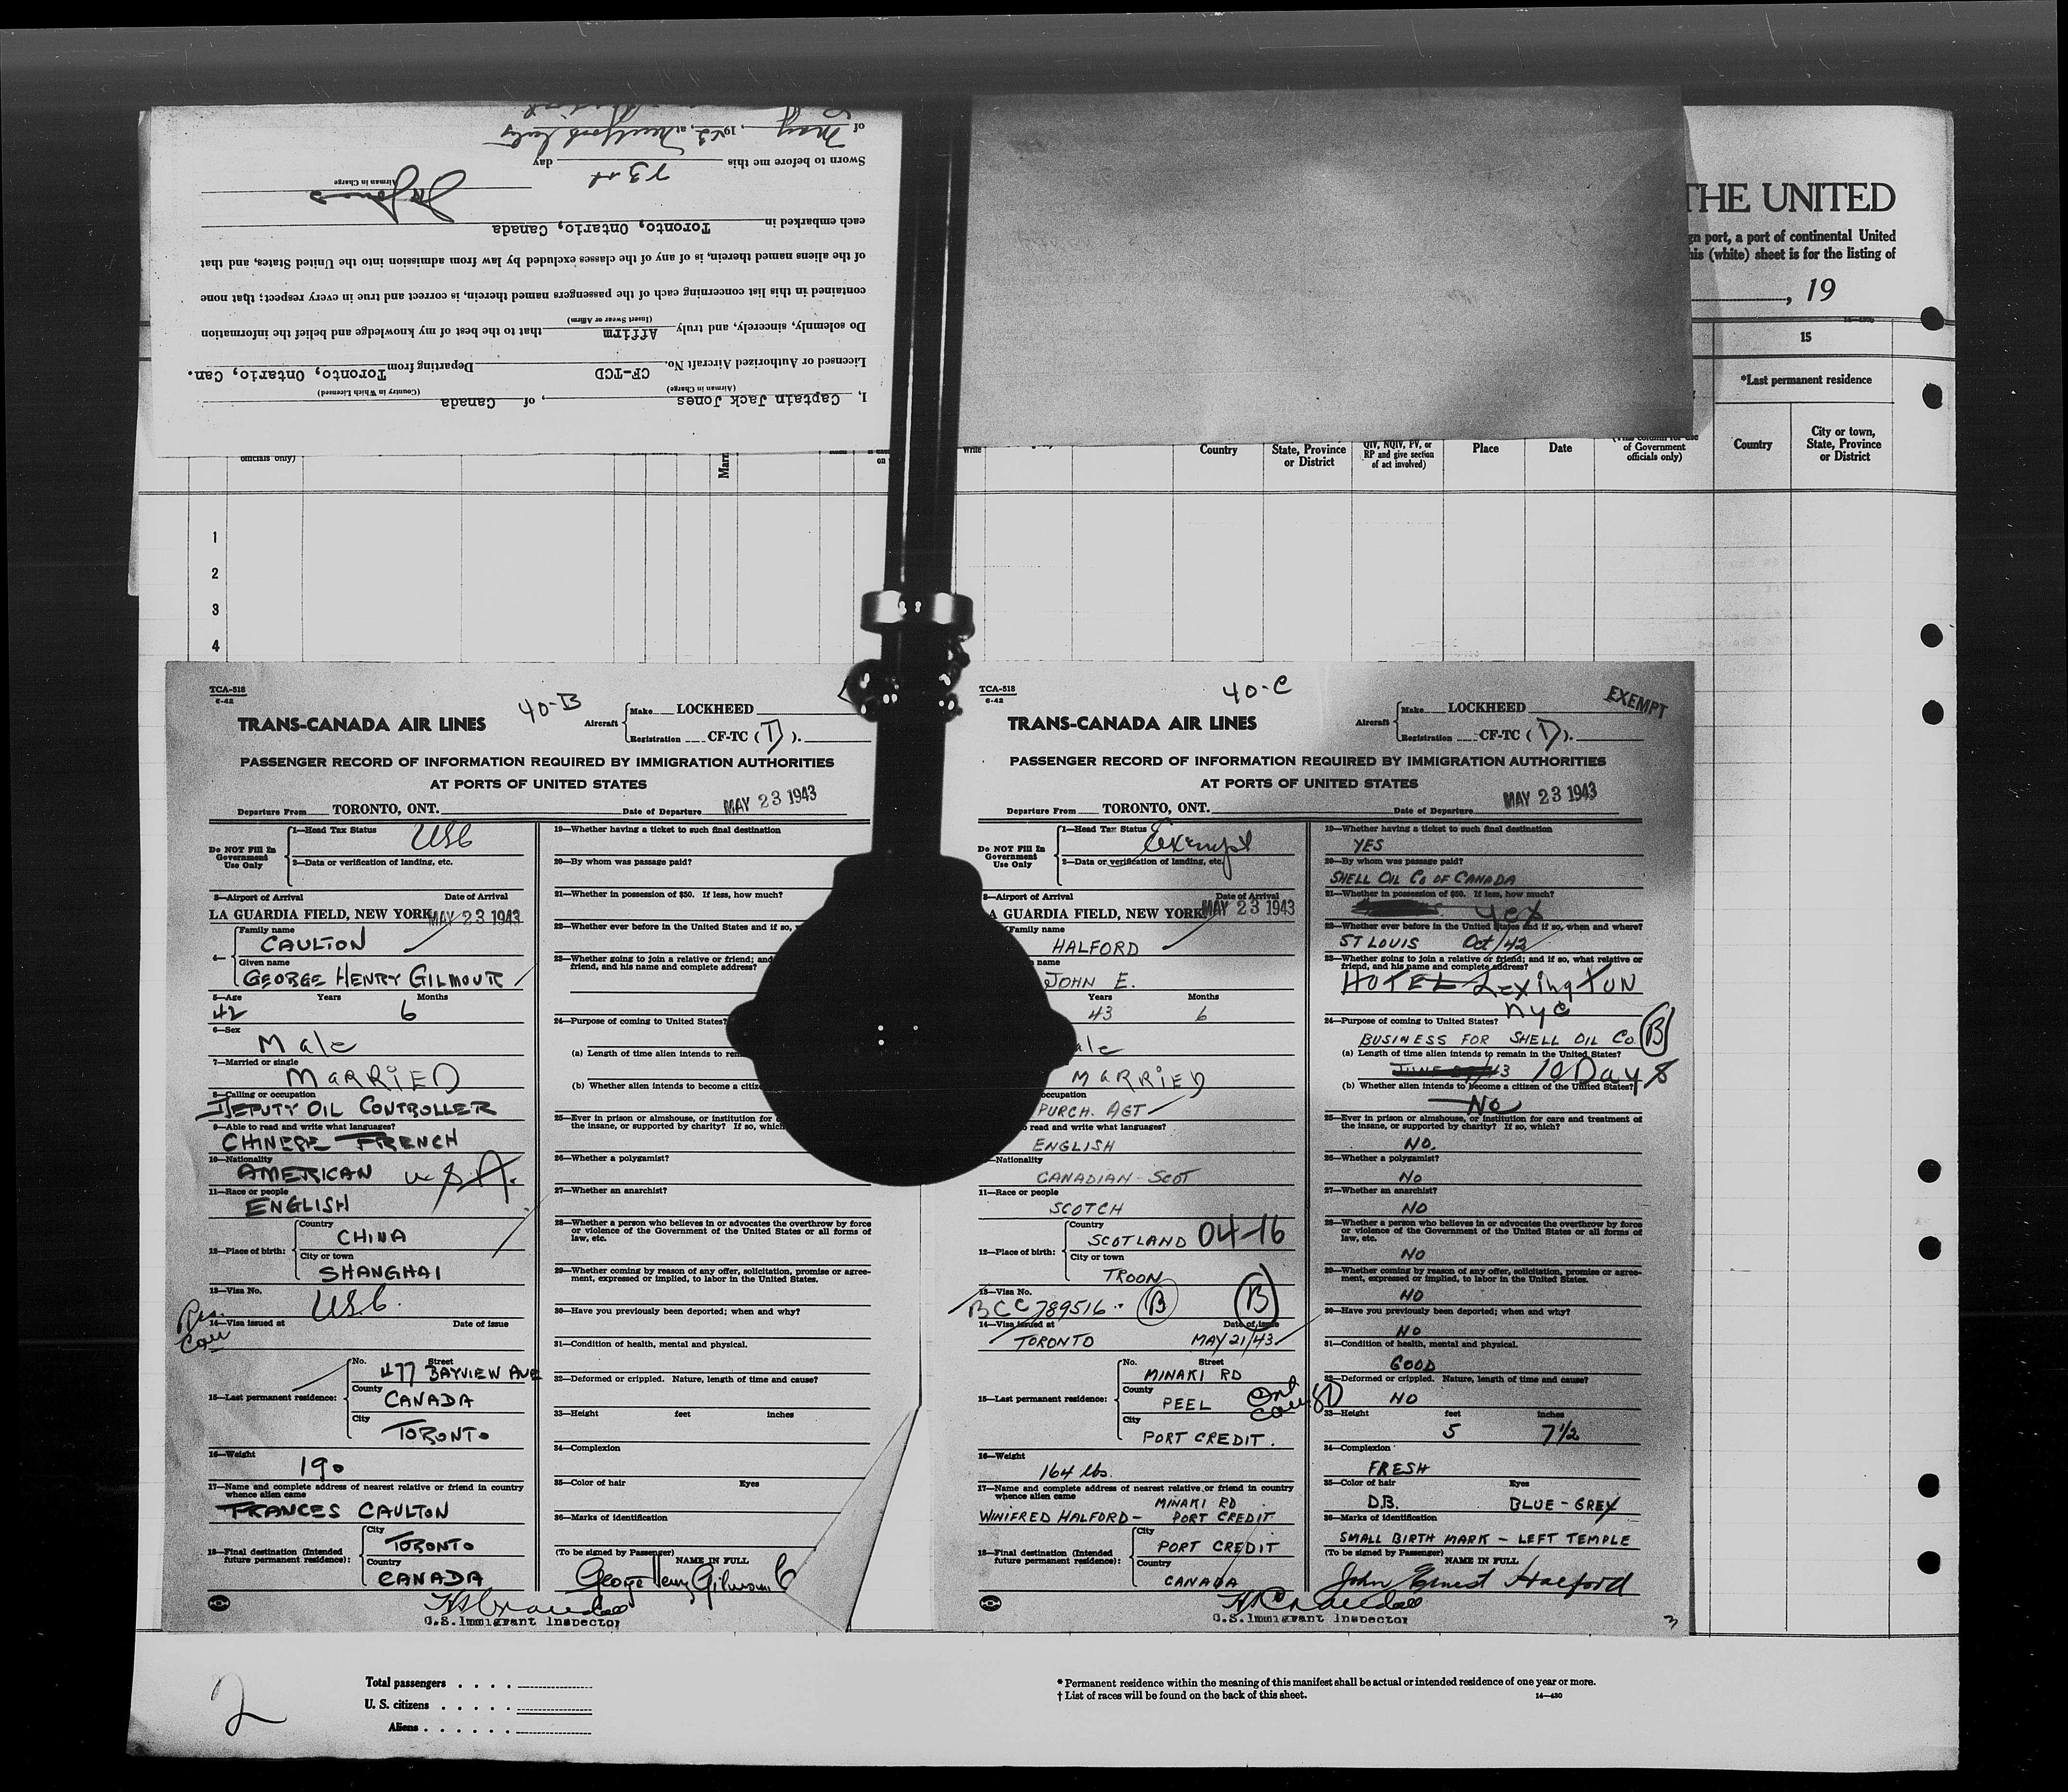 I, Captain Jack Jones, of Canada
(Airman in Charge) (Country in Which Licensed)
Licensed or Authorized Aircraft No. CF-TCD Departing from Toronto, Ontario, Can.
Do solemnly, sincerely, and truly Affirm that to the best of my knowledge and belief the information
(Insert Swear or Affirm)
contained in this list concerning each of the passengers named therein, is correct and true in every respect; that none
of the aliens named therein, is of any of the classes excluded by law from admission into the United States, and that
each embarked in Toronto, Ontario, Canada
Airman in Charge
Sworn to before me this 23rd day
of May, 1943, at
THE UNITED
gn port, a port of continental United
his (white) sheet is for the listing of
, 19
15
*Last permanent residence
officials only)
write
Country
State, Province
or District
QIV, NQIV, PV, or
RP and give section
of act involved)
Place
Date
of Government
officials only)
Country
City or town,
State, Province
or District
1
2
3
4
TCA-518
6-42
40-B
TRANS-CANADA AIR LINES
Aircraft
Make LOCKHEED
Registration CF-TC (D).
PASSENGER RECORD OF INFORMATION REQUIRED BY IMMIGRATION AUTHORITIES
AT PORTS OF UNITED STATES
Departure From TORONTO, ONT. Date of Departure MAY 23 1943
Do NOT Fill In
Government
Use Only
1—Head Tax Status USC
2—Data or verification of landing, etc.
3—Airport of Arrival Date of Arrival
LA GUARDIA FIELD, NEW YORK MAY 23 1943
4—
Family name
CAULTON
Given name
GEORGE HENRY GILMOUR
5—Age Years Months
42 6
6—Sex
Male
7—Married or single
MARRIED
8—Calling or occupation
DEPUTY OIL CONTROLLER
9—Able to read and write what languages?
CHINESE FRENCH
10—Nationality
AMERICAN U.S.A.
11—Race or people
ENGLISH
12—Place of birth:
Country
CHINA
City or town
SHANGHAI
13—Visa No.
USC.
Res.
Can
14—Visa issued at Date of issue
15—Last permanent residence:
No. Street
477 BAYVIEW AVE
County
CANADA
City
TORONTO
16—Weight
190
17—Name and complete address of nearest relative or friend in country
whence alien came
FRANCES CAULTON
18—Final destination (Intended
future permanent residence):
City
TORONTO
Country
CANADA
19—Whether having a ticket to such final destination
20—By whom was passage paid?
21—Whether in possession of $50. If less, how much?
22—Whether ever before in the United States and if so,
23—Whether going to join a relative or friend; and
friend, and his name and complete address?
24—Purpose of coming to United States?
(a) Length of time alien intends to
(b) Whether alien intends to become a
25—Ever in prison or almshouse, or institution for
the insane, or supported by charity? If so, which
26—Whether a polygamist?
27—Whether an anarchist?
28—Whether a person who believes in or advocates the overthrow by force
or violence of the Government of the United States or all forms of
law, etc.
29—Whether coming by reason of any offer, solicitation, promise or agree-
ment, expressed or implied, to labor in the United States.
30—Have you previously been deported; when and why?
31—Condition of health, mental and physical.
32—Deformed or crippled. Nature, length of time and cause?
33—Height feet inches
34—Complexion
35—Color of hair Eyes
36—Marks of identification
(To be signed by Passenger) NAME IN FULL
George Henry Gilmour C
U.S. Immigrant Inspector
TCA-518
6-42
40-C
EXEMPT
TRANS-CANADA AIR LINES
Aircraft
Make LOCKHEED
Registration CF-TC (D).
PASSENGER RECORD OF INFORMATION REQUIRED BY IMMIGRATION AUTHORITIES
AT PORTS OF UNITED STATES
Departure From TORONTO, ONT. Date of Departure MAY 23 1943
Do NOT Fill In
Government
Use Only
1—Head Tax Status Exempt
2—Data or verification of landing, etc.
3—Airport of Arrival Date of Arrival
A GUARDIA FIELD, NEW YORK MAY 23 1943
Family name
HALFORD
name
JOHN E.
Years Months
43 6
ale
MARRIED
occupation
PURCH. AGT
read and write what languages?
ENGLISH
Nationality
CANADIAN - SCOT
11—Race or people
SCOTCH
12—Place of birth:
Country
SCOTLAND 04-16
City or town
TROON
13—Visa No.
BCC 789516 B B
14—Visa issued at Date of issue
TORONTO MAY 21/43
15—Last permanent residence:
No. Street
MINAKI RD
County
PEEL Ont
City
PORT CREDIT.
16—Weight
164 lbs.
17—Name and complete address of nearest relative or friend in country
whence alien came
MINAKI RD
WINIFRED HALFORD - PORT CREDIT
18—Final destination (Intended
future permanent residence):
City
PORT CREDIT
Country
CANADA
19—Whether having a ticket to such final destination
YES
20—By whom was passage paid?
SHELL OIL CO OF CANADA
21—Whether in possession of $50. If less, how much?
yes
22—Whether ever before in the United States and if so, when and where?
ST LOUIS Oct/42
23—Whether going to join a relative or friend; and if so, what relative or
friend, and his name and complete address?
HOTEL Lexington
NYC
24—Purpose of coming to United States?
BUSINESS FOR SHELL OIL CO. B
(a) Length of time alien intends to remain in the United States?
10 Days
(b) Whether alien intends to become a citizen of the United States?
NO
25—Ever in prison or almshouse, or institution for care and treatment of
the insane, or supported by charity? If so, which?
NO.
26—Whether a polygamist?
NO
27—Whether an anarchist?
NO
28—Whether a person who believes in or advocates the overthrow by force
or violence of the Government of the United States or all forms of
law, etc.
NO
29—Whether coming by reason of any offer, solicitation, promise or agree-
ment, expressed or implied, to labor in the United States.
NO
30—Have you previously been deported; when and why?
NO
31—Condition of health, mental and physical.
GOOD
32—Deformed or crippled. Nature, length of time and cause?
NO
33—Height feet inches
5 7½
34—Complexion
FRESH
35—Color of hair Eyes
D.B. BLUE-GREY
36—Marks of identification
SMALL BIRTH MARK - LEFT TEMPLE
(To be signed by Passenger) NAME IN FULL
John Ernest Halford
U.S. Immigrant Inspector
3
2
Total passengers
U. S. citizens
Aliens
* Permanent residence within the meaning of this manifest shall be actual or intended residence of one year or more.
† List of races will be found on the back of this sheet.
14—430